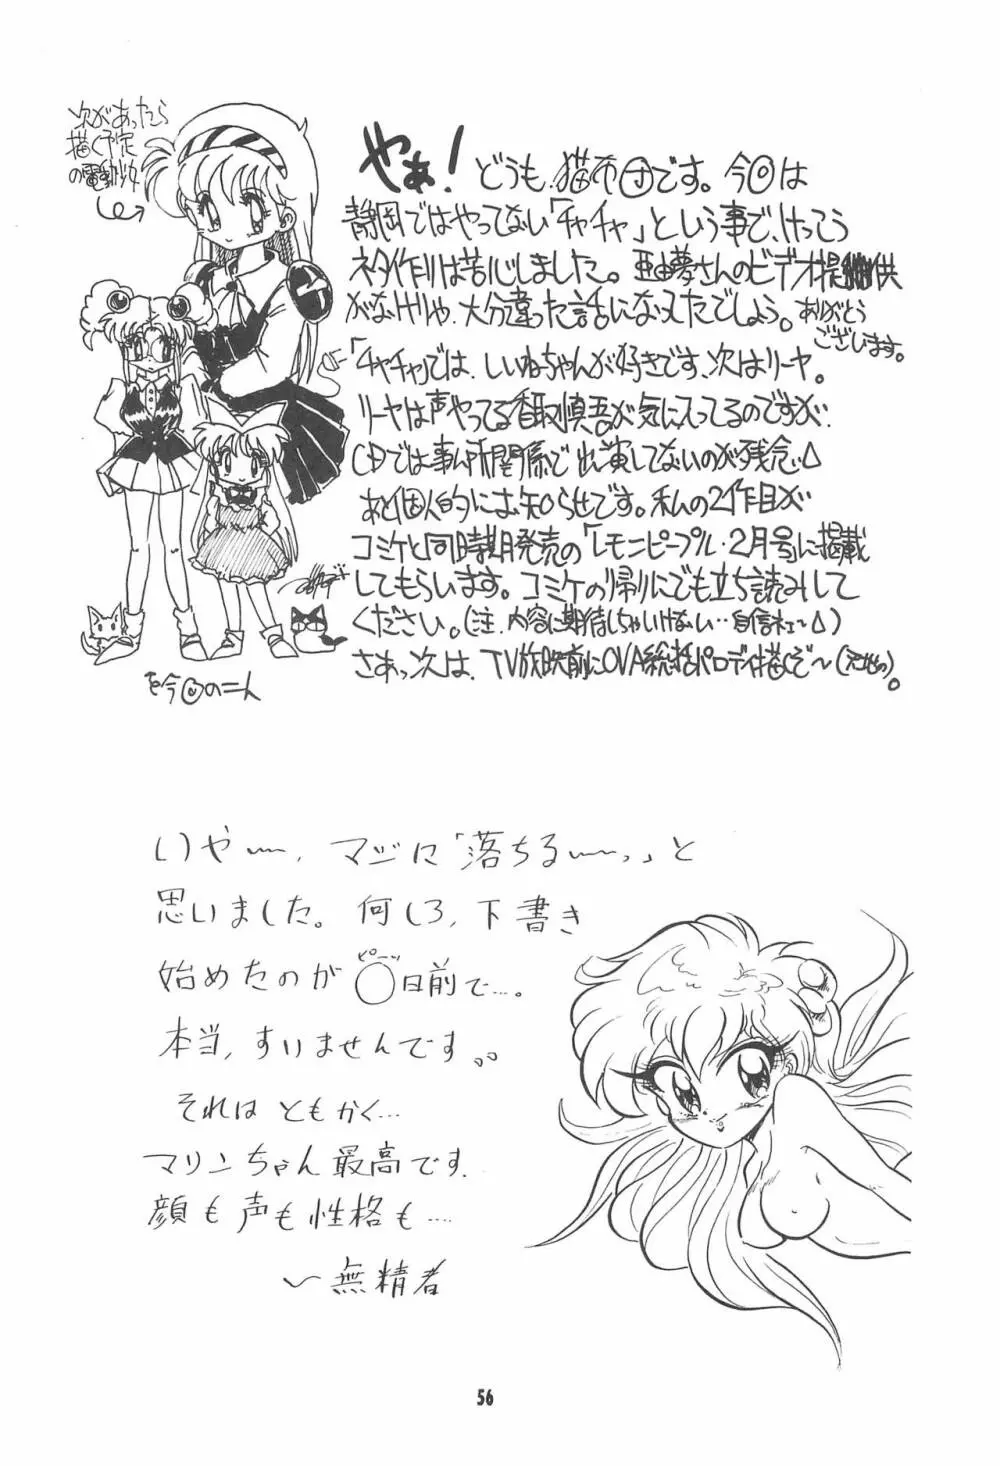 次があったら
描く予定
の電動少女
やぁ！どうも.猫布団です。今回は
静岡ではやってない「チャチャ」という事で、けっこう
ネタ作りは苦心しました。亜由夢さんのビデオ提供
がなけりゃ、大分違った話になってたでしょう。ありがとう
ございます。
「チャチャ」では、しいねちゃんが好きです、次はリーヤ。
リーヤは声やってる香取慎吾が気に入ってるのですが、
CDでは事ム所関係で出演してないのが残念。
あと個人的にお知らせです。私の2作目が
コミケと同時期発売の「レモンピープル・2月号」に掲載
してもらいます。コミケの帰りにでも立ち読みして
ください。(注.内容に期待しちゃいけない…自信ネェ〜)
さぁっ次は、TV放映前にOVA総括パロディ描くぞ〜
を今回の二人
いやー、マジに「落ちるーっ」と
思いました。何しろ,下書き
始めたのが〇日前で…。
ピーッ
本当,すいませんです。。
それは ともかく…
マリンちゃん最高です.
顔も声も性格も….
〜無精者
56